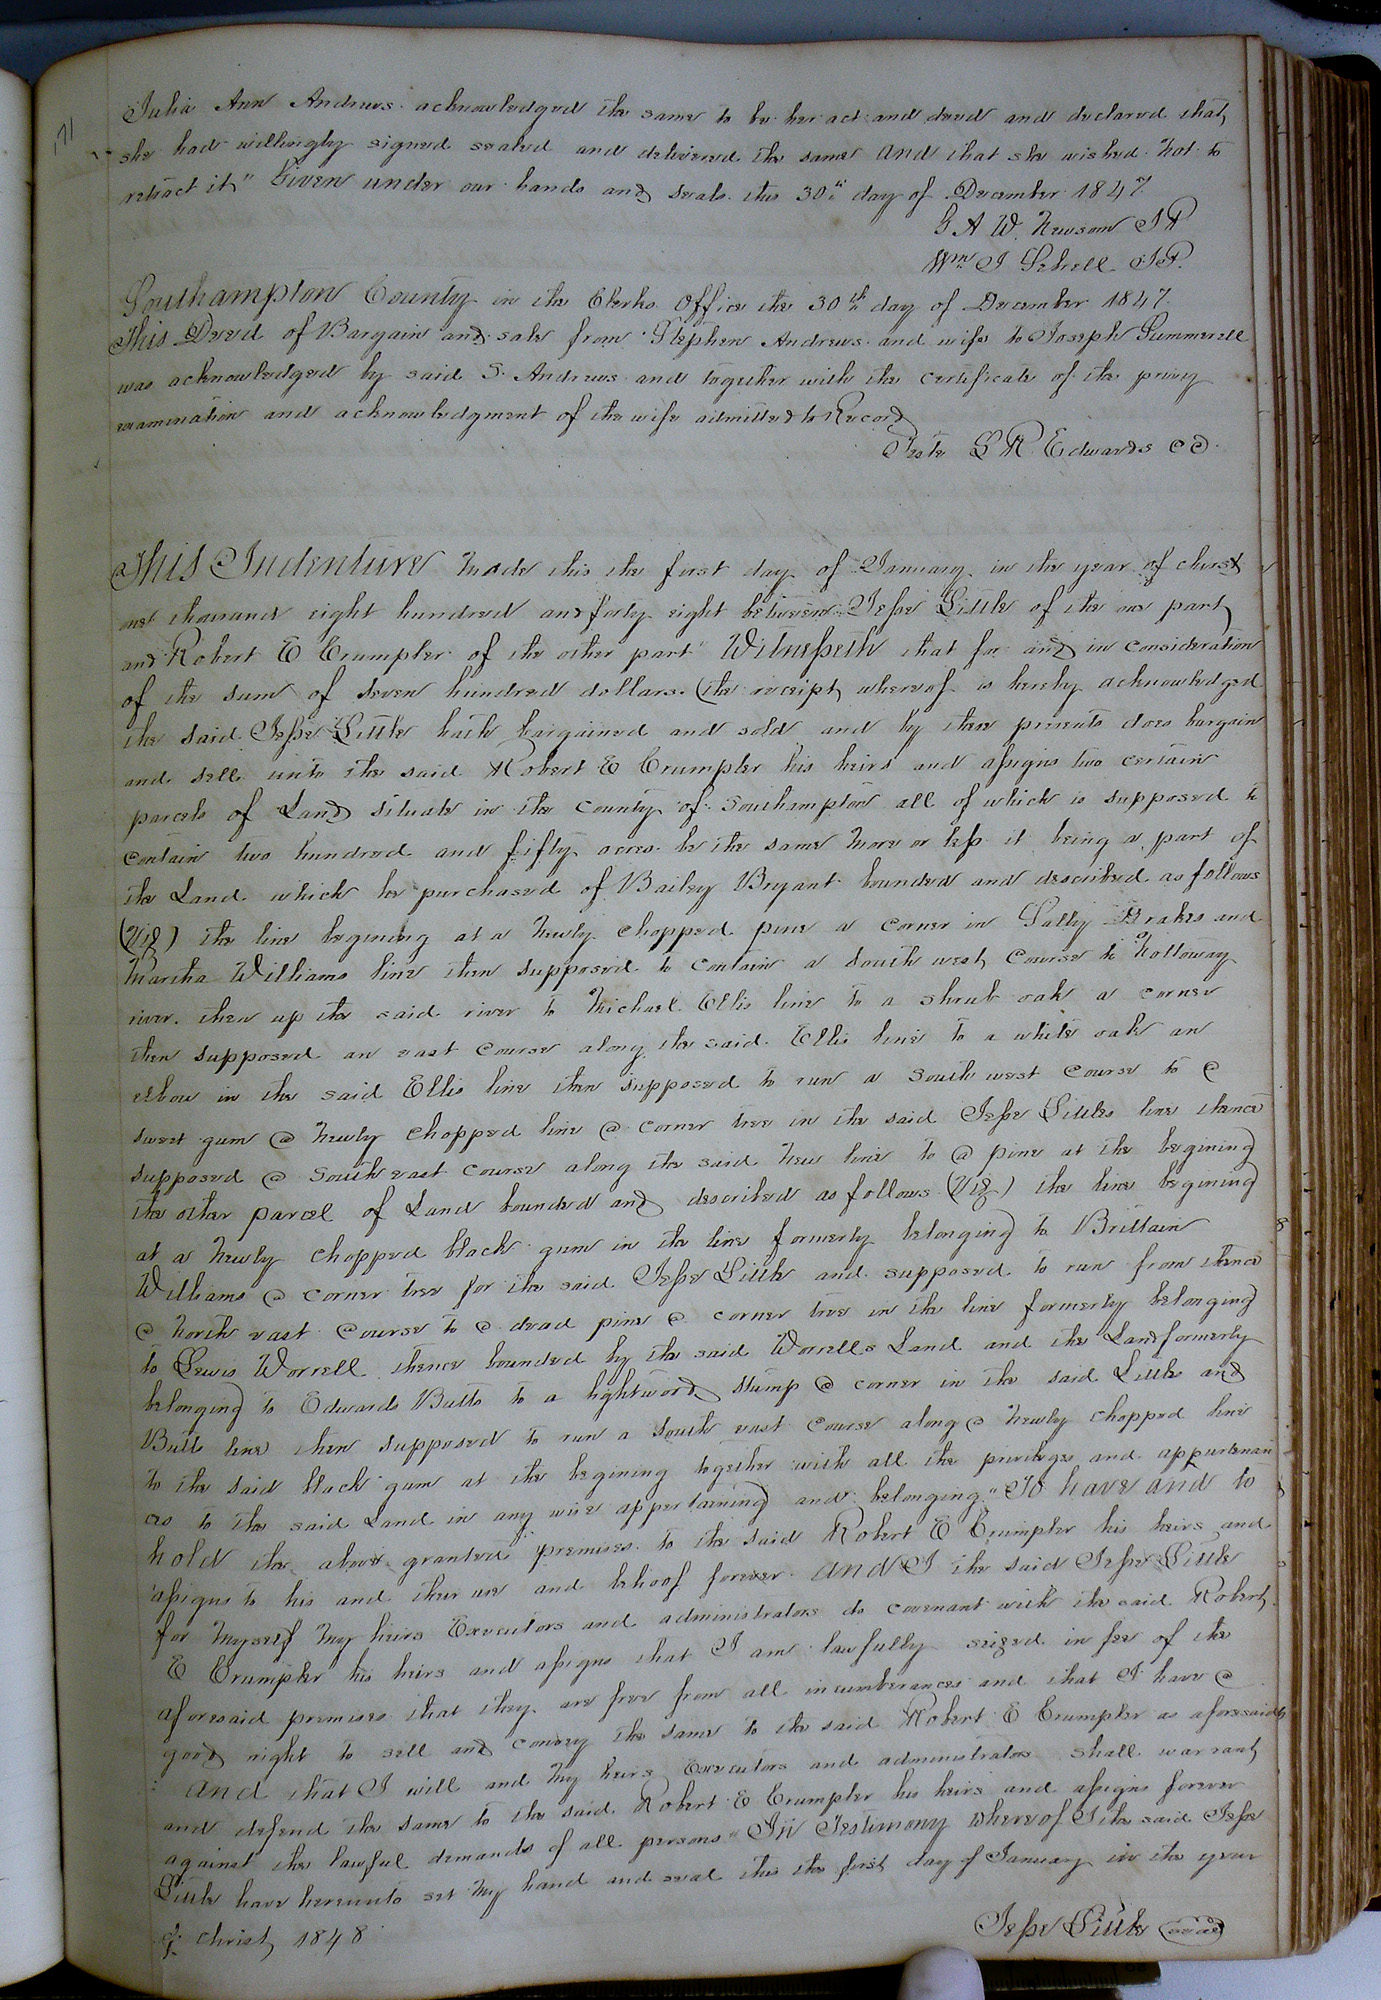 171
Julia Ann Andrews acknowledged the same to be her act and deed and declared that
she had willingly signed sealed and delivered the same and that she wished not to
retract it" Given under our hands and seals this 30th day of December 1847
G A W. Newsom JP
Wm J Sebrell JP.
Southampton County in the Clerks Office the 30th day of December 1847
This Deed of Bargain and sale from Stephen Andrews and wife to Joseph Summerell
was acknowledged by said S. Andrews and together with the certificate of the privy
examination and acknowledgment of the wife admitted to Record
Teste L R Edwards CC
This Indenture made this the first day of January in the year of christ
one thousand eight hundred and forty eight between Jesse Little of the one part
and Robert E Crumpler of the other part" Witnesseth that for and in consideration
of the sum of seven hundred dollars. (the receipt whereof is hereby acknowledged
the said Jesse Little hath bargained and sold and by these presents does bargain
and sell unto the said Robert E Crumpler his heirs and assigns two certain
parcels of Land situate in the County of Southampton all of which is supposed to
contain two hundred and fifty acres be the same more or less it being a part of
the Land which he purchased of Bailey Bryant bounded and described as follows
(Viz) the line begining at a newly chopped pine a corner in Sally Drakes and
Martha Williams line then supposed to contain a south west course to Nottoway
river. then up the said river to Michael Ellis line to a shrub oak a corner
then supposed an east course along the said Ellis line to a white oak an
elbow in the said Ellis line then supposed to run a South west course to a
sweet gum a newly chopped line a corner tree in the said Jesse Littles line thence
supposed a South east course along the said new line to a pine at the begining
the other parcel of Land bounded and described as follows (Viz) the line begining
at a newly chopped black gum in the line formerly belonging to Brittain
Williams a corner tree for the said Jesse Little and supposed to run from thence
a North east course to a dead pine a corner tree in the line formerly belonging
to Lewis Worrell thence bounded by the said Worrells Land and the Land formerly
belonging to Edwards Butts to a lightwood stump a corner in the said Little and
Butts line then supposed to run a South east course along a newly chopped line
to the said black gum at the begining together with all the priviliges and appurtenan
ces to the said Land in any wise appertaining and belonging" To have and to
hold the above granted premises to the said Robert E Crumpler his heirs and
assigns to his and their use and behoof forever. And I the said Jesse Little
for myself my heirs Executors and administrators do covenant with the said Robert
E Crumpler his heirs and assigns that I am lawfully seized in fee of the
aforesaid premises that they are free from all incumberances and that I have a
good right to sell and convey the same to the said Robert E Crumpler as aforesaid
And that I will and my heirs Executors and administrators shall warrant
and defend the same to the said Robert E Crumpler his heirs and assigns forever
against the lawful demands of all persons" In Testimony whereof I the said Jesse
Little have hereunto set my hand and seal this the first day of January in the year
of Christ 1848
Jesse Little (seal)